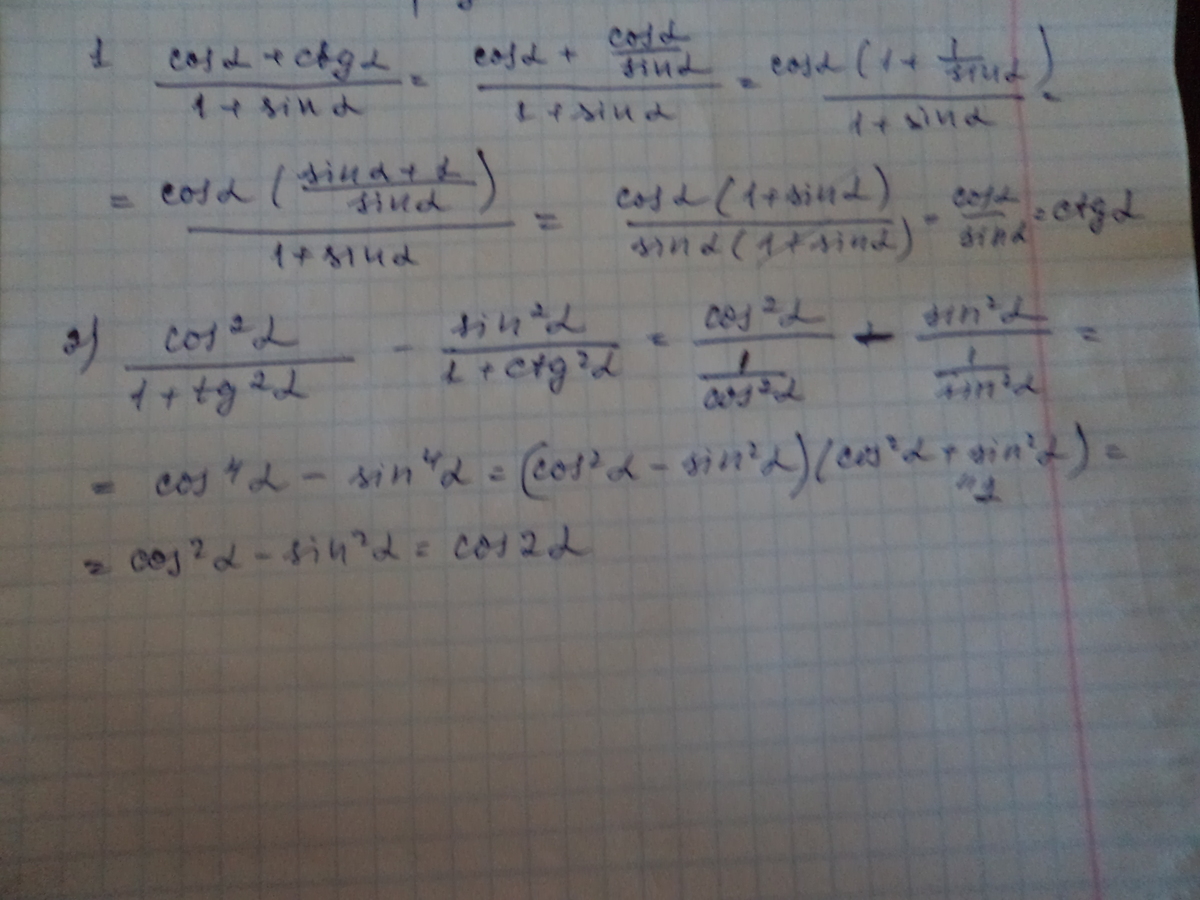 1 (cosα + ctgα)/(1 + sinα) = (cosα + cosα/sinα)/(1 + sinα) = cosα (1 + 1/sinα)/(1 + sinα) =
= cosα ((sinα + 1)/sinα)/(1 + sinα) = cosα (1 + sinα)/(sinα (1 + sinα)) = cosα/sinα = ctgα
2) cos²α/(1 + tg²α) - sin²α/(1 + ctg²α) = cos²α/(1/cos²α) - sin²α/(1/sin²α) =
= cos⁴α - sin⁴α = (cos²α - sin²α)(cos²α + sin²α) =
"1
= cos²α - sin²α = cos2α